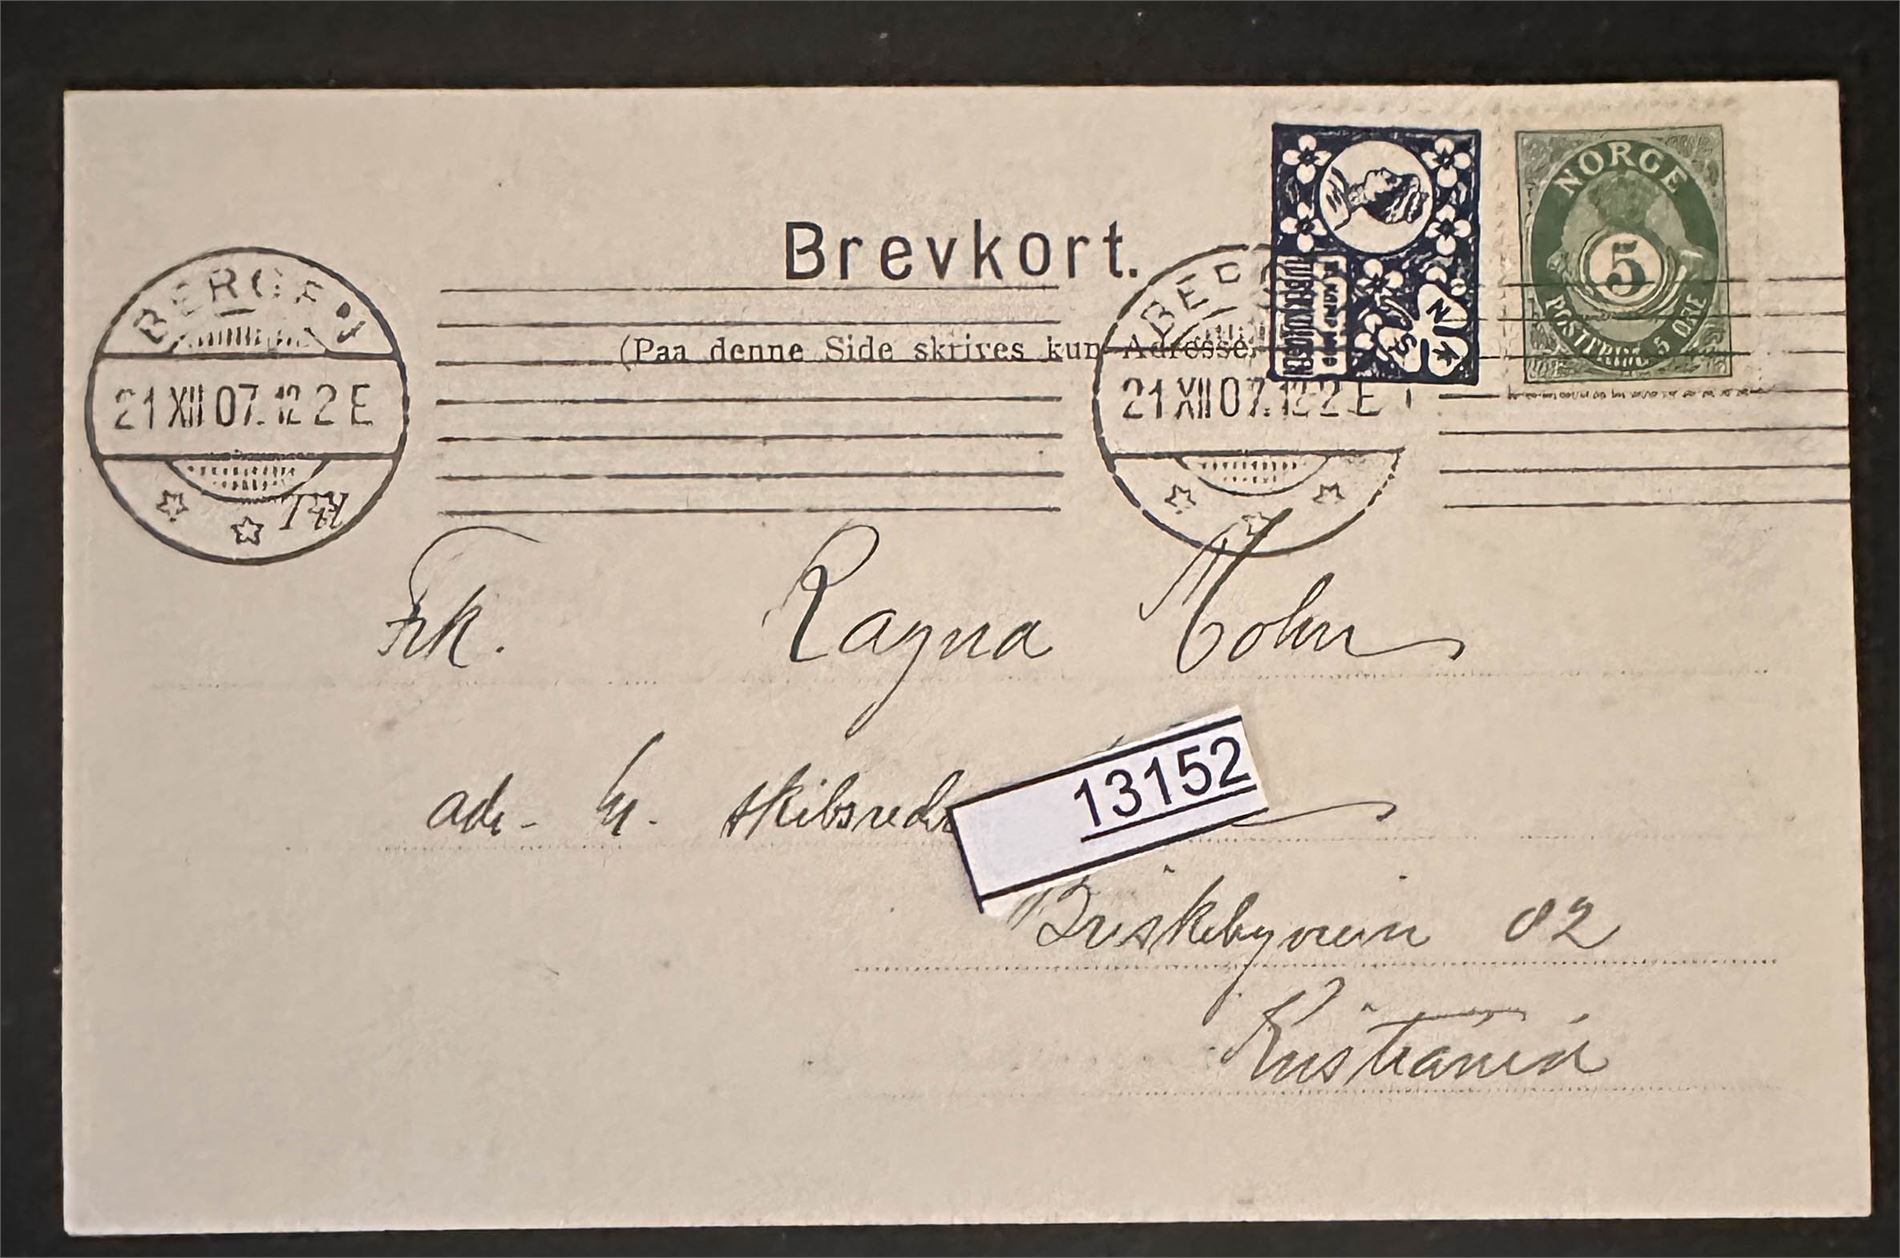 Brevkort.
NORGE
5
POSTFRIM. 5 ØRE
N.K.S.
BERGEN
21 XII 07. 12 2 E
BERG
21 XII 07. 12 2 E
(Paa denne Side skrives kun Adresse
Frk. Ragna Mohn
adr. hr. skibsreder
13152
Briskebyveien 82
Kristiania